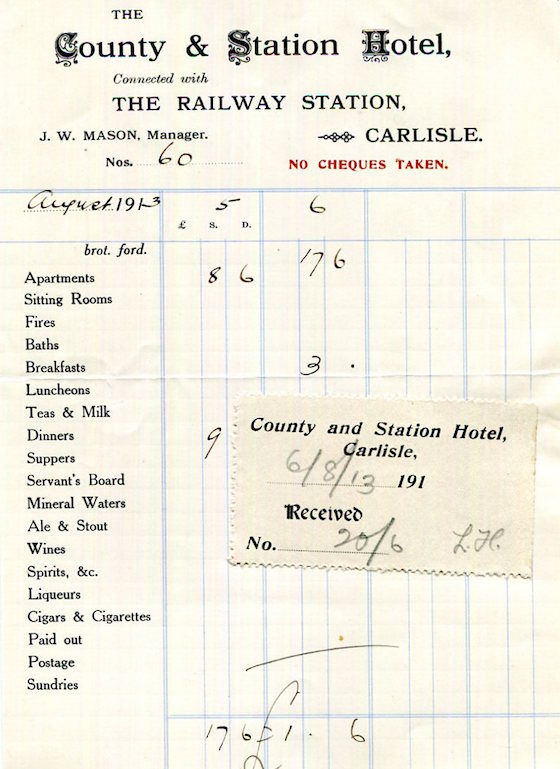 THE
County & Station Hotel,
Connected with
THE RAILWAY STATION,
J. W. MASON, Manager.
CARLISLE.
Nos. 60
NO CHEQUES TAKEN.
August 1913 5 6
£ S. D.
brot. ford. 17 6
Apartments 8 6
Sitting Rooms
Fires
Baths
Breakfasts 3 .
Luncheons
Teas & Milk
Dinners 9
Suppers
Servant's Board
Mineral Waters
Ale & Stout
Wines
Spirits, &c.
Liqueurs
Cigars & Cigarettes
Paid out
Postage
Sundries
17 6 1 . 6
County and Station Hotel,
Carlisle,
6/8/13 191
Received
No. 20/6 L.H.